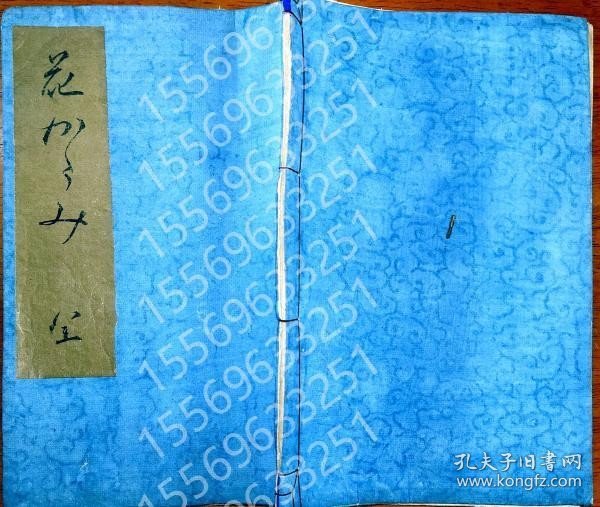 花かゞみ
全
15569633251
15569633251
15569633251
15569633251
15569633251
15569633251
15569633251
15569633251
孔夫子旧书网
www.kongfz.com